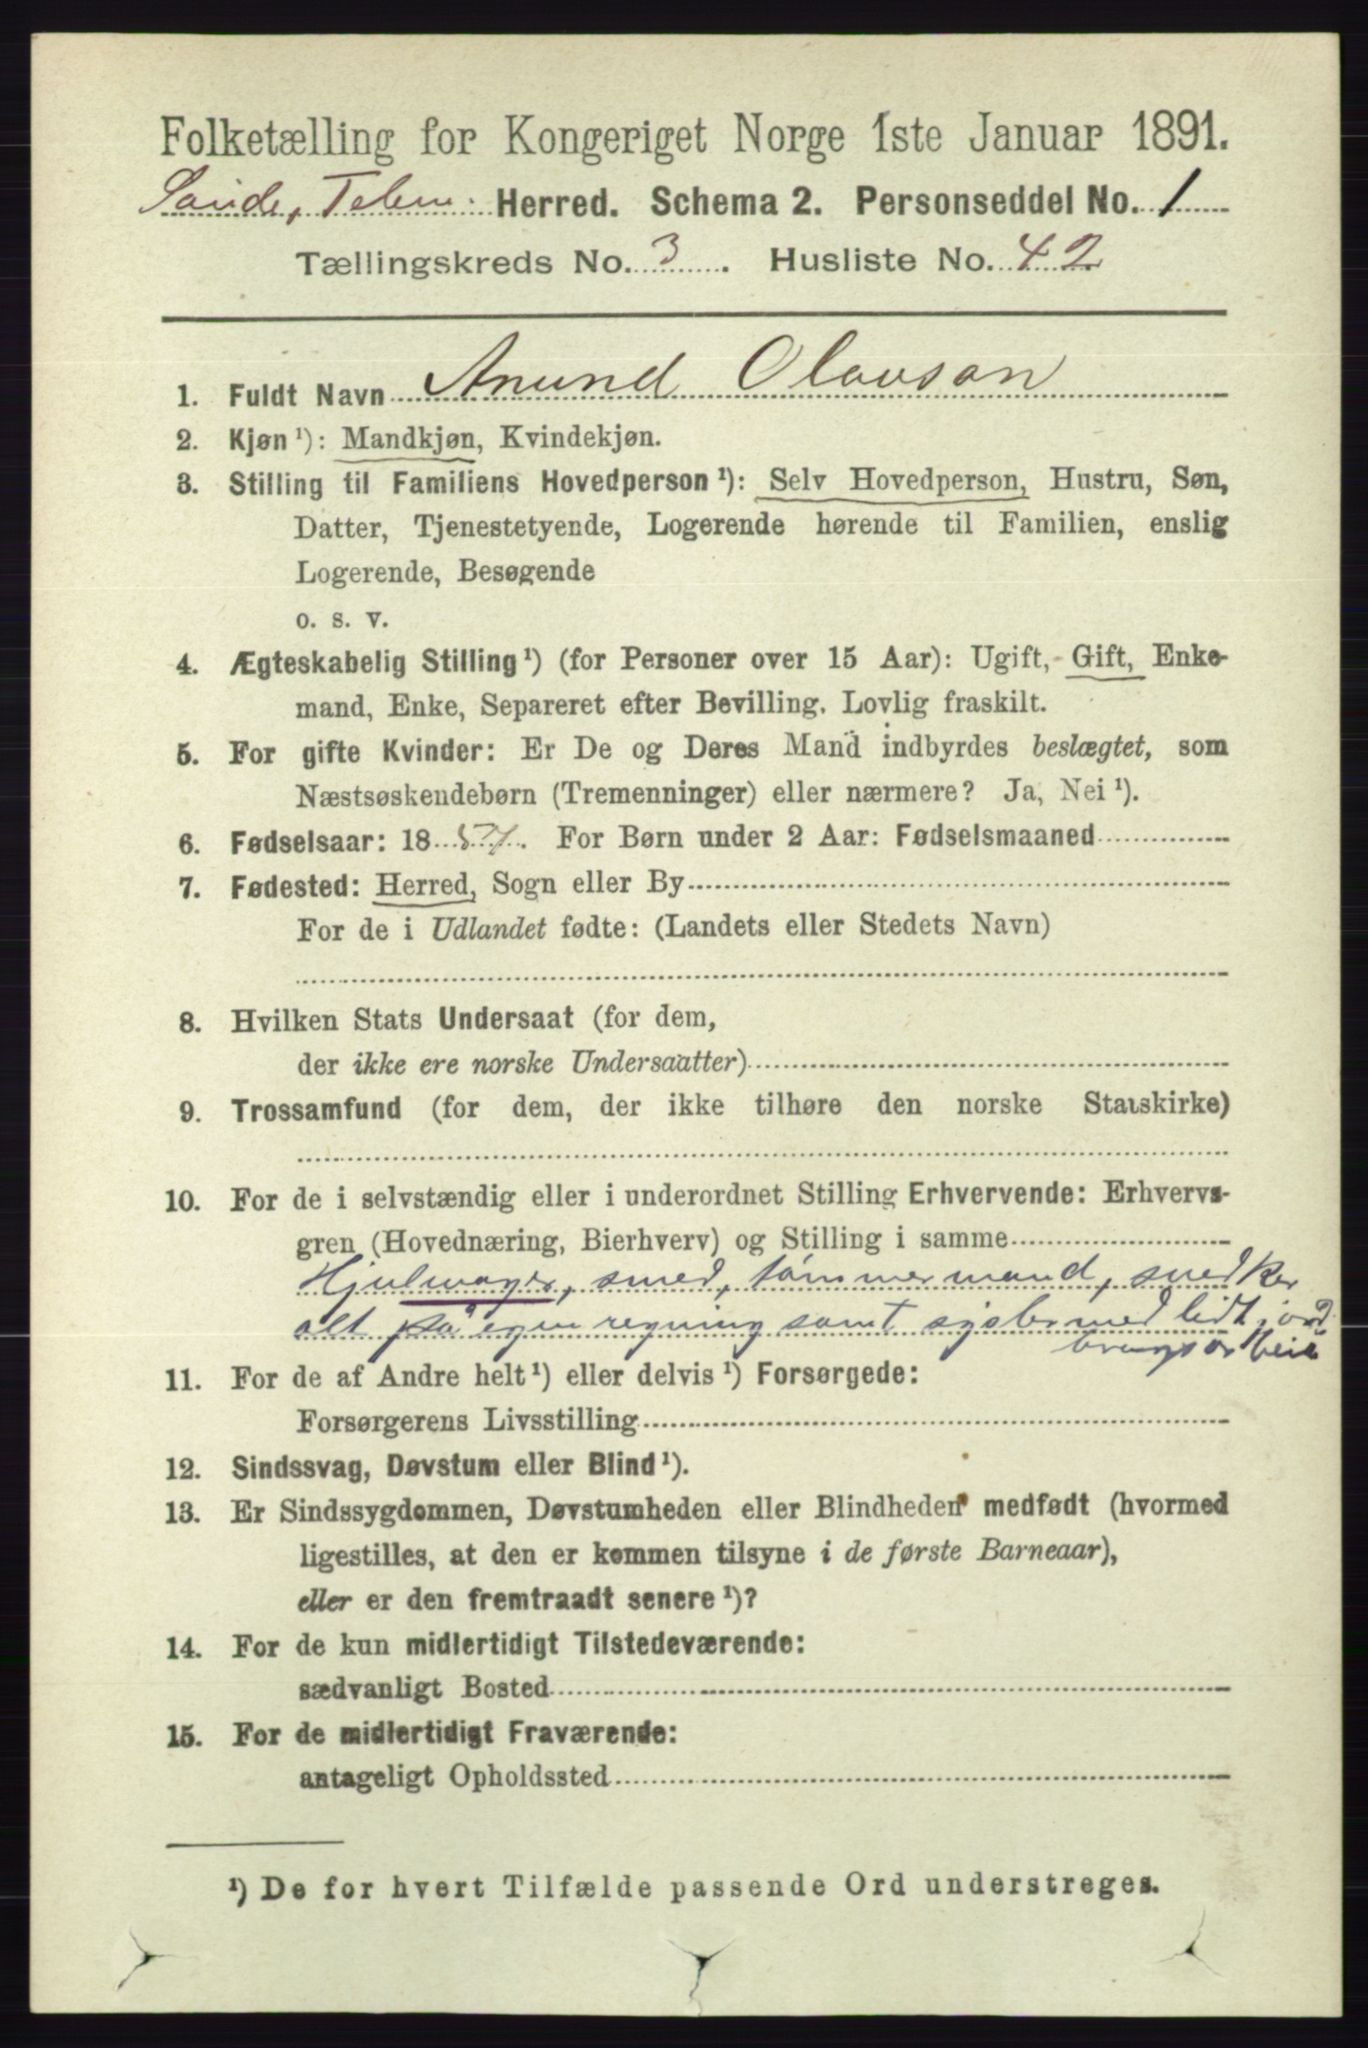 Folketælling for Kongeriget Norge 1ste Januar 1891.
Saude, Telem. Herred. Schema 2. Personseddel No. 1
Tællingskreds No. 3. Husliste No. 42
1. Fuldt Navn Anund Olavson
2. Kjøn ¹): Mandkjøn, Kvindekjøn.
3. Stilling til Familiens Hovedperson ¹): Selv Hovedperson, Hustru, Søn,
Datter, Tjenestetyende, Logerende hørende til Familien, enslig
Logerende, Besøgende
o. s. v.
4. Ægteskabelig Stilling ¹) (for Personer over 15 Aar): Ugift, Gift, Enke-
mand, Enke, Separeret efter Bevilling. Lovlig fraskilt.
5. For gifte Kvinder: Er De og Deres Mand indbyrdes beslægtet, som
Næstsøskendebørn (Tremenninger) eller nærmere? Ja, Nei ¹).
6. Fødselsaar: 1857. For Børn under 2 Aar: Fødselsmaaned
7. Fødested: Herred, Sogn eller By
For de i Udlandet fødte: (Landets eller Stedets Navn)
8. Hvilken Stats Undersaat (for dem,
der ikke ere norske Undersaatter)
9. Trossamfund (for dem, der ikke tilhøre den norske Statskirke)
10. For de i selvstændig eller i underordnet Stilling Erhvervende: Erhvervs-
gren (Hovednæring, Bierhverv) og Stilling i samme
Hjulmager, smed, tømmermand, snedker
alt på egen regning samt sysler med lidt jord-
brugsarbeid
11. For de af Andre helt ¹) eller delvis ¹) Forsørgede:
Forsørgerens Livsstilling
12. Sindssvag, Døvstum eller Blind ¹).
13. Er Sindssygdommen, Døvstumheden eller Blindheden medfødt (hvormed
ligestilles, at den er kommen tilsyne i de første Barneaar),
eller er den fremtraadt senere ¹)?
14. For de kun midlertidigt Tilstedeværende:
sædvanligt Bosted
15. For de midlertidigt Fraværende:
antageligt Opholdssted
¹) De for hvert Tilfælde passende Ord understreges.